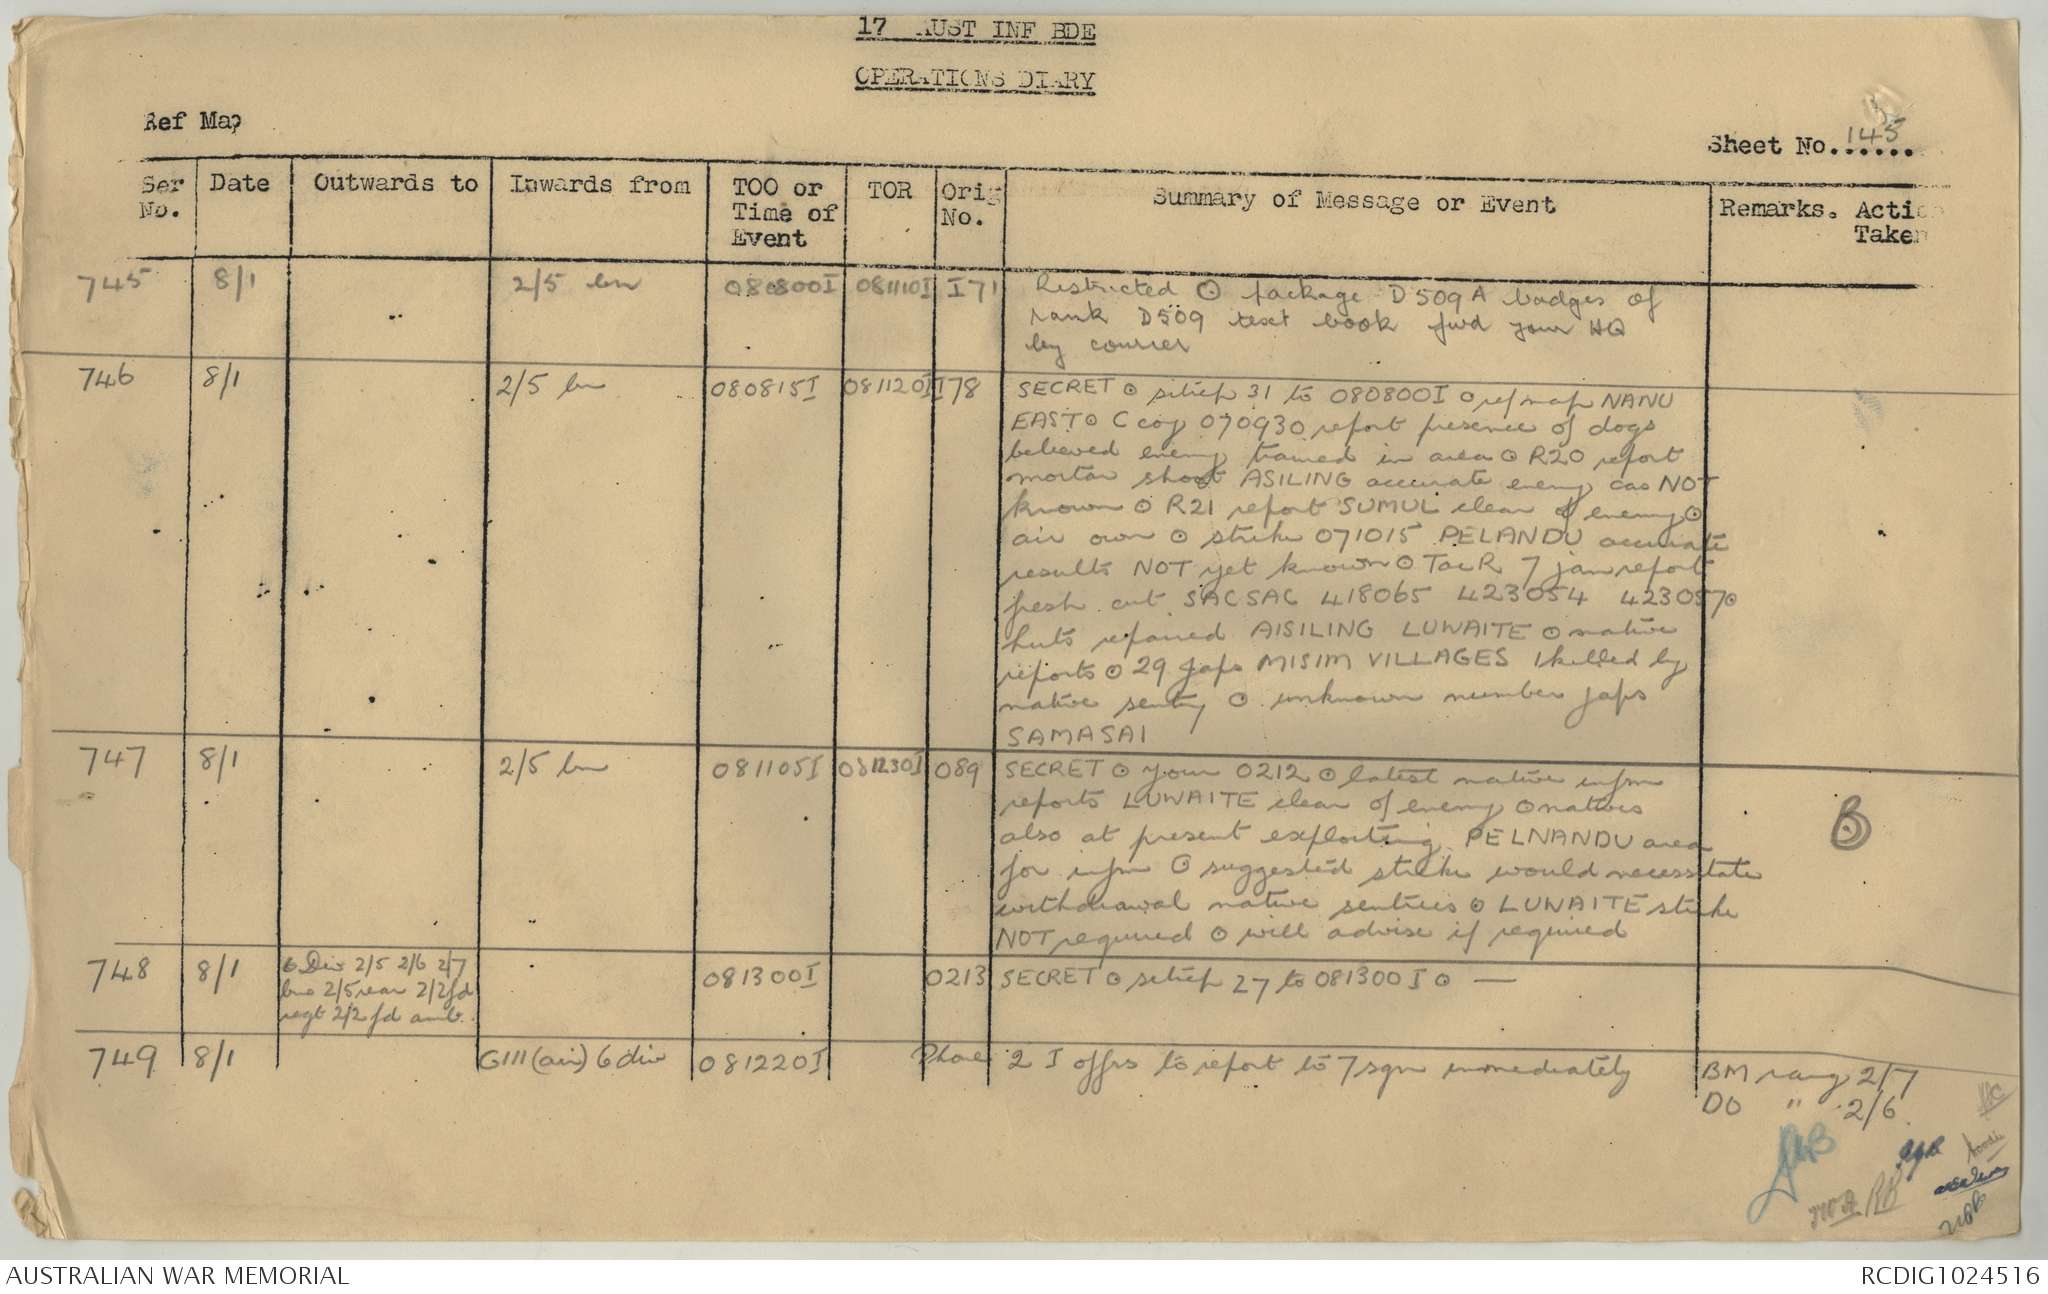 17 AUST INF BDE
OPERATIONS DIARY
Ref Map
Sheet No. 145
Ser No. Date Outwards to Inwards from TOO or Time of Event TOR Orig No. Summary of Message or Event Remarks. Action Taken
745 8/1 2/5 bn 080800I 081110I I71 Restricted ⊙ package D509A badges of
rank D509 text book fwd your HQ
by courier
746 8/1 2/5 bn 080815I 081120I I78 SECRET ⊙ sitrep 31 to 080800I ⊙ ref map NANU
EAST ⊙ C coy 070930 report presence of dogs
believed enemy trained in area ⊙ R20 report
mortar shoot ASILING accurate enemy cas NOT
known ⊙ R21 report SUMUL clear of enemy ⊙
air own ⊙ strike 071015 PELANDU accurate
results NOT yet known ⊙ TacR 7 jan report
fresh cut SACSAC 418065 423054 423057 ⊙
huts repaired AISILING LUWAITE ⊙ native
reports ⊙ 29 Japs MISIM VILLAGES 1 killed by
native sentry ⊙ unknown number japs
SAMASAI
747 8/1 2/5 bn 081105I 081230I 089 SECRET ⊙ your 0212 ⊙ latest native infm
reports LUWAITE clear of enemy ⊙ natives
also at present exploiting PELNANDU area
for infm ⊙ suggested strike would necessitate
withdrawal native sentries ⊙ LUWAITE strike
NOT required ⊙ will advise if required
B
748 8/1 6 Div 2/5 2/6 2/7 081300I 0213 SECRET ⊙ sitrep 27 to 081300I ⊙ —
bns 2/5 rear 2/2 fd
regt 2/2 fd amb.
749 8/1 GIII (air) 6 div 081220I Phone 2 I offrs to report to 7 sqn immediately BM rang 2/7
DO " 2/6
RB
AUSTRALIAN WAR MEMORIAL
RCDIG1024516